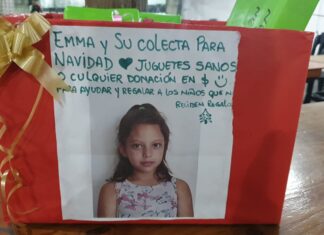 EMMA Y SU COLECTA PARA
NAVIDAD ♥ JUGUETES SANOS
O CULQUIER DONACIÓN EN $ ☺
PARA AYUDAR Y REGALAR A LOS NIÑOS QUE N
RECIBEN REGALO